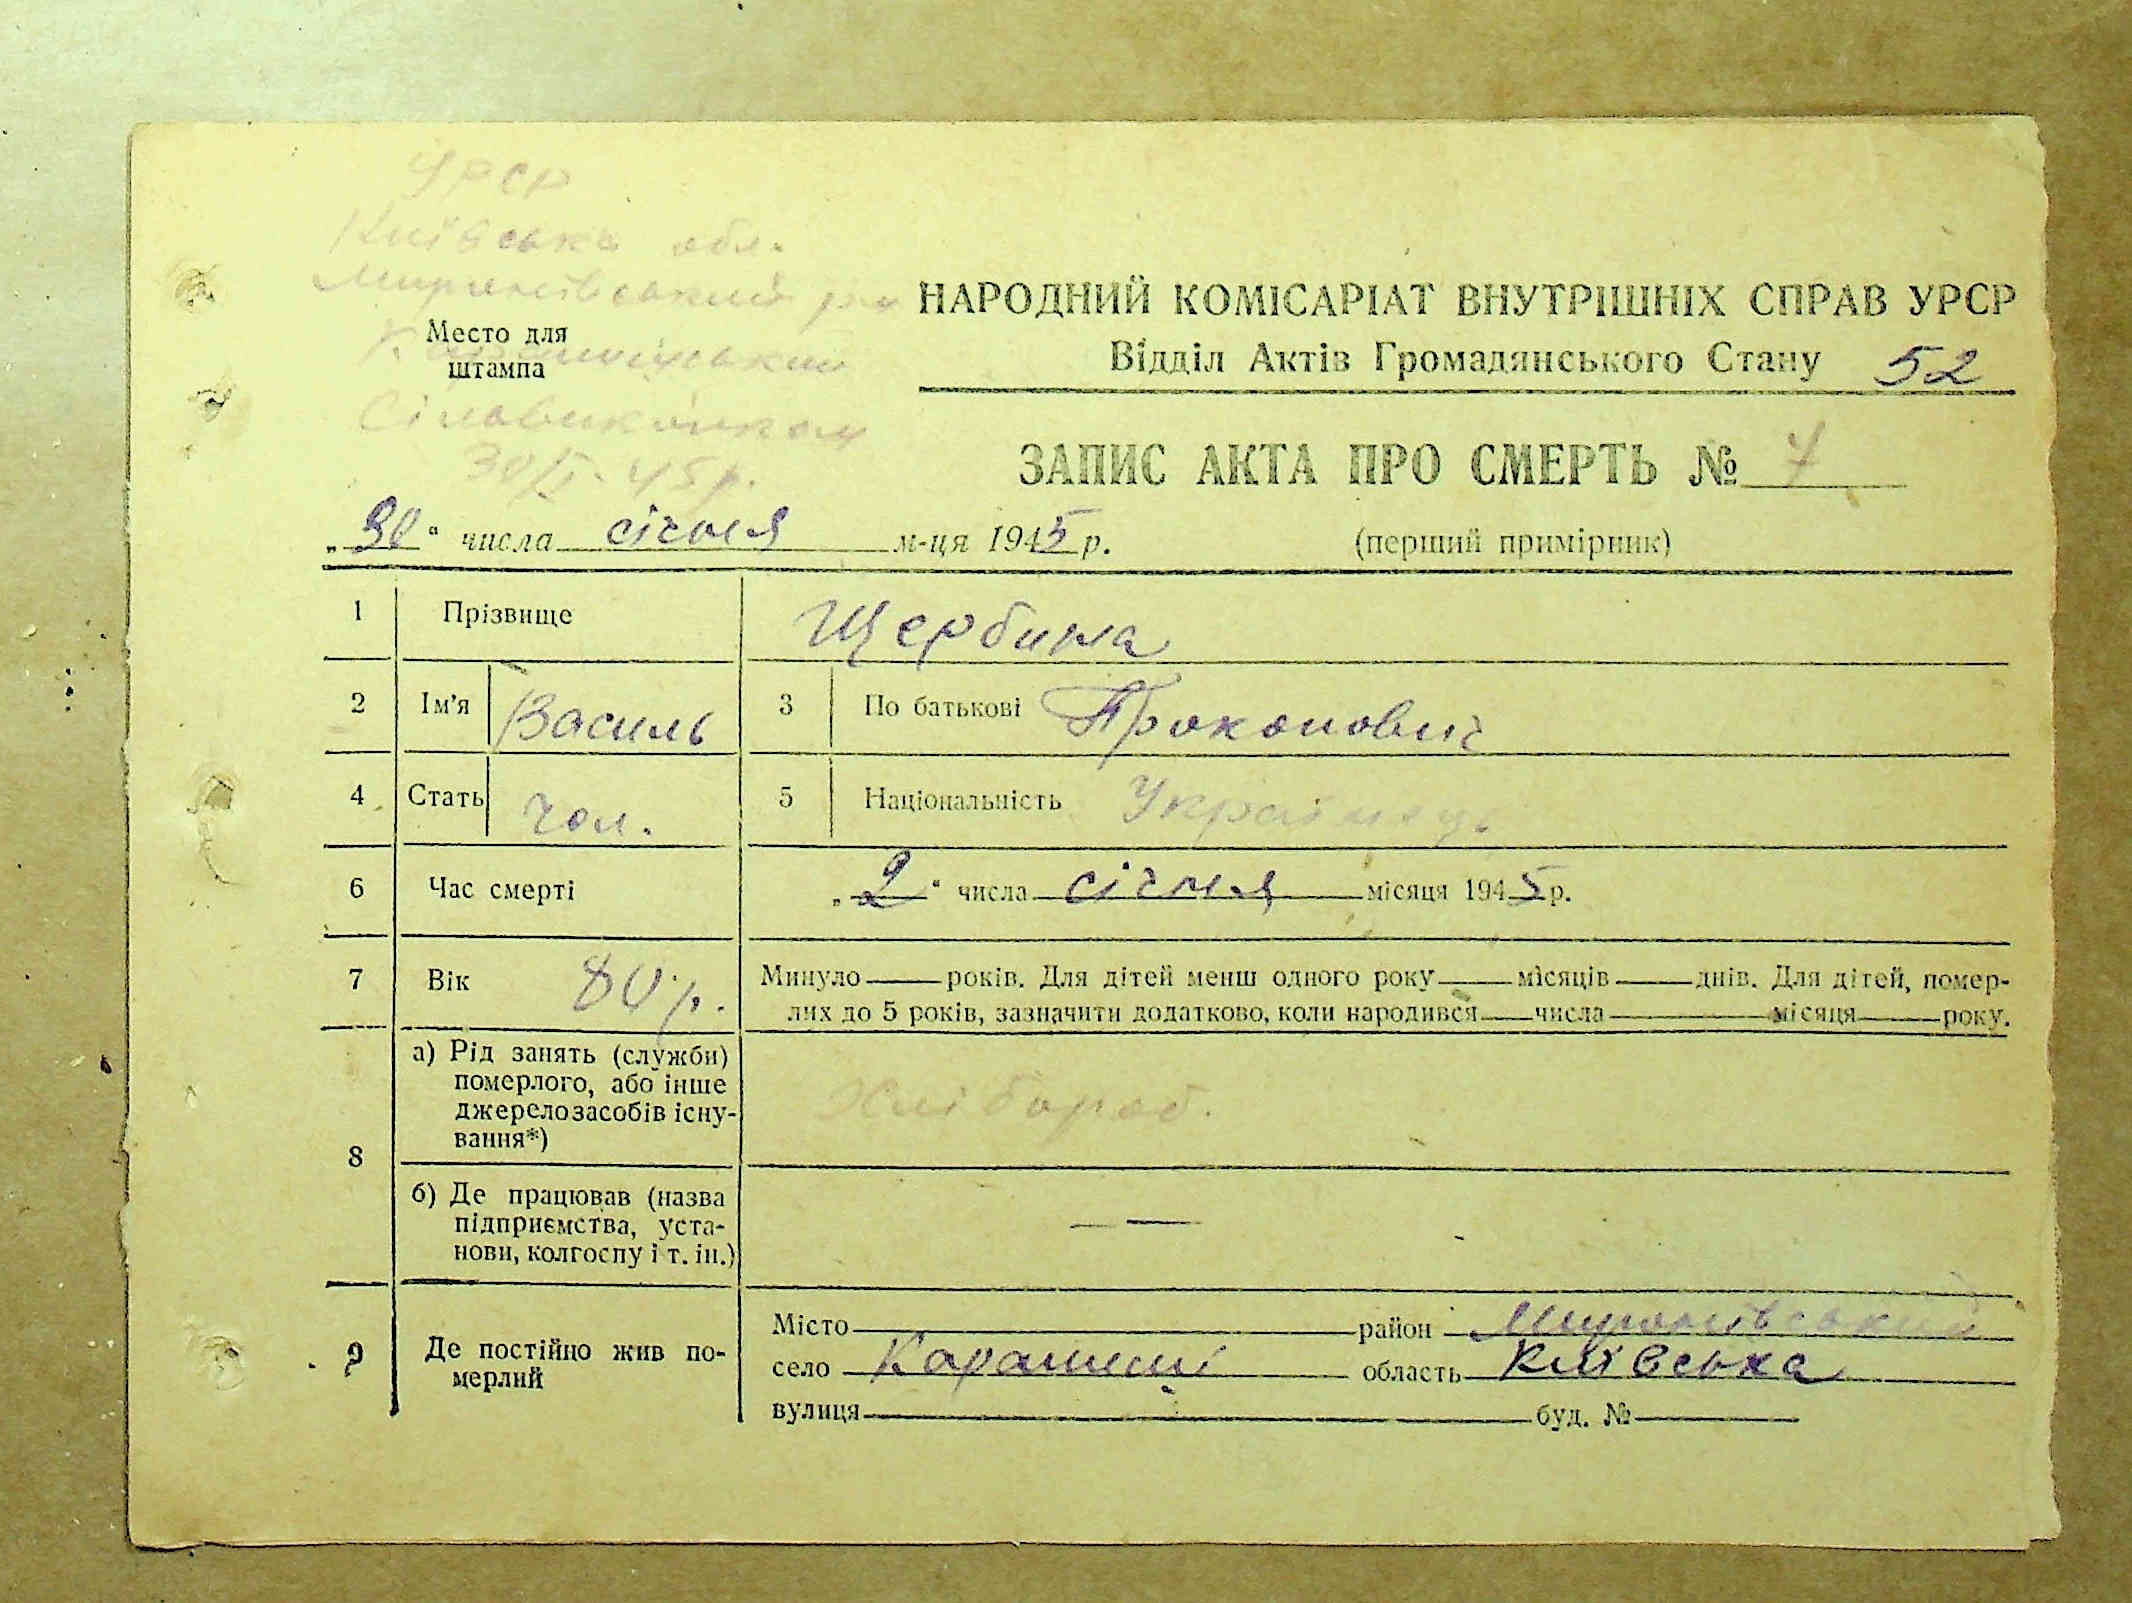 УРСР
Київська обл.
Миронівський р-н
Место для
штампа
Карапишський
Сільвиконком
30/I-45 р.
НАРОДНИЙ КОМІСАРІАТ ВНУТРІШНІХ СПРАВ УРСР
Відділ Актів Громадянського Стану 52
ЗАПИС АКТА ПРО СМЕРТЬ № 7
„30“ числа січня м-ця 1945 р.
(перший примірник)
1 Прізвище Щербина
2 Ім'я Василь 3 По батькові Прокопович
4 Стать чол. 5 Національність Українець
6 Час смерті „2“ числа січня місяця 1945 р.
7 Вік 80 р. Минуло — років. Для дітей менш одного року — місяців — днів. Для дітей, помер-
лих до 5 років, зазначити додатково, коли народився — числа — місяця — року.
8 а) Рід занять (служби)
померлого, або інше
джерело засобів існу-
вання*)
Хлібороб.
б) Де працював (назва
підприємства, уста-
нови, колгоспу і т. ін.)
—
9 Де постійно жив по-
мерлий
Місто — район Миронівський
село Карапиші область Київська
вулиця — буд. № —